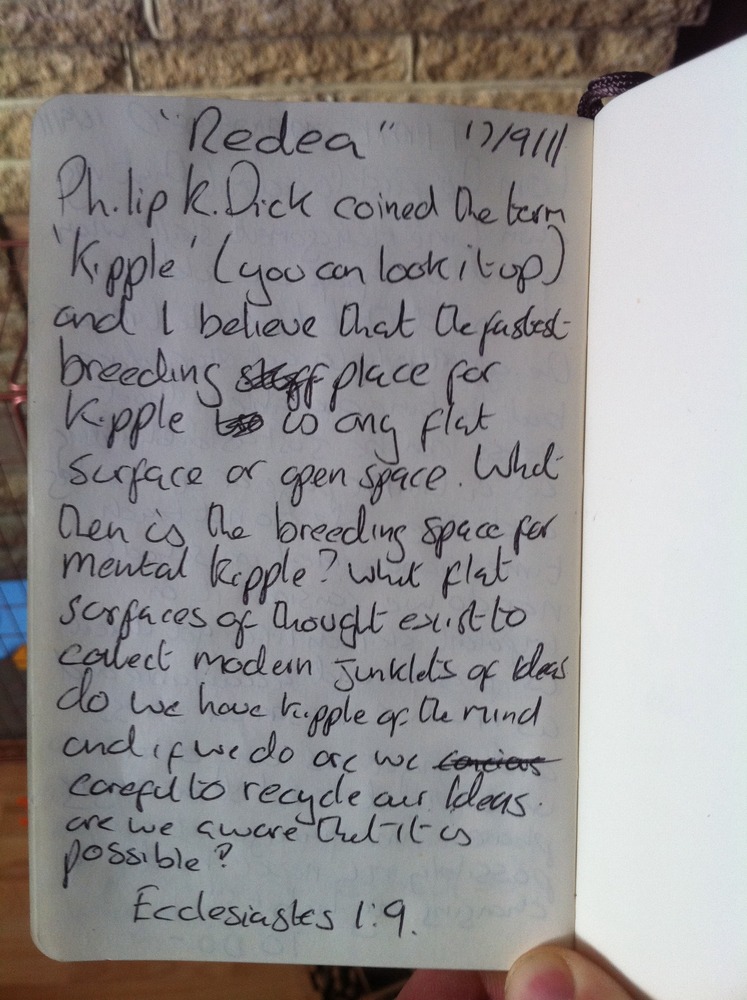 "Redea" 17/9/11
Philip K. Dick coined the term
'Kipple' (you can look it up)
and I believe that the fastest
breeding place for
Kipple is any flat
surface or open space. What
then is the breeding space for
mental kipple? What flat
surfaces of thought exist to
collect modern junklets of Ideas
do we have kipple of the mind
and if we do are we
careful to recycle our Ideas.
are we aware that it is
possible?
Ecclesiastes 1:9.